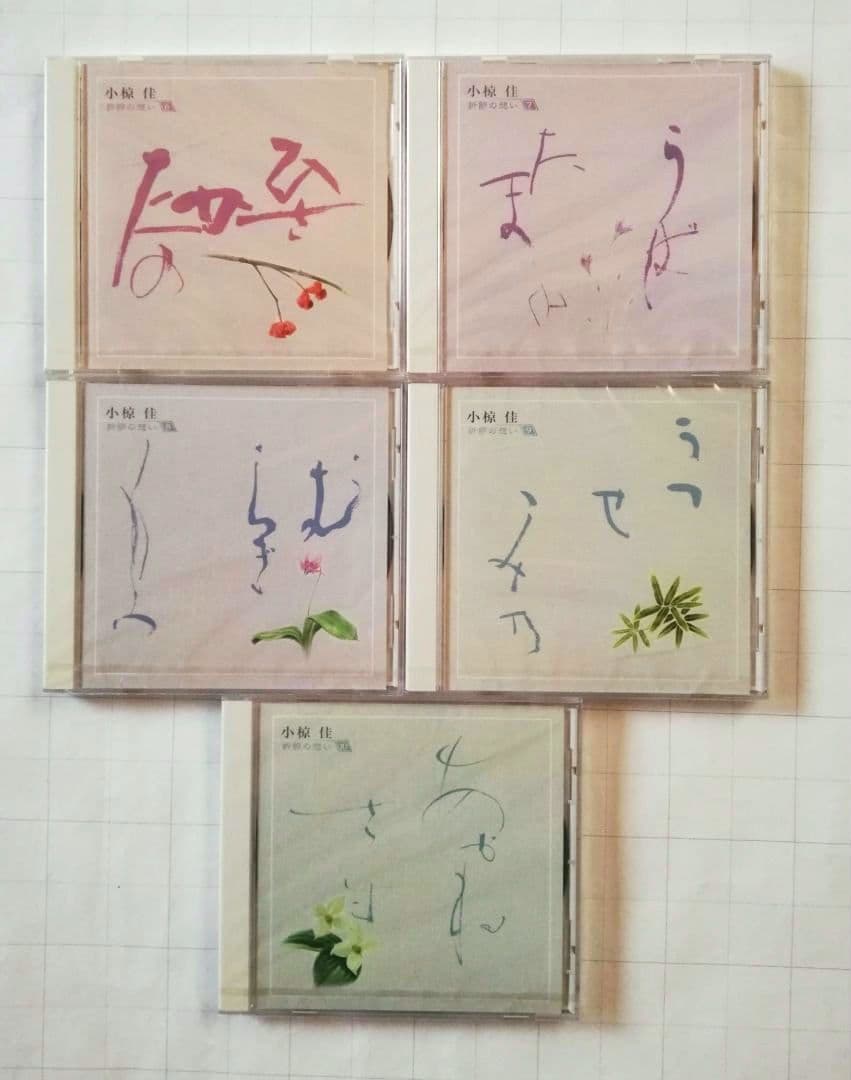 小椋 佳
折節の想い 6
ひさ
か
たの
小椋 佳
折節の想い 7
うば
たま
小椋 佳
折節の想い 8
む
らぎ
小椋 佳
折節の想い 9
うつ
せ
み乃
小椋 佳
折節の想い 10
あかね
さ